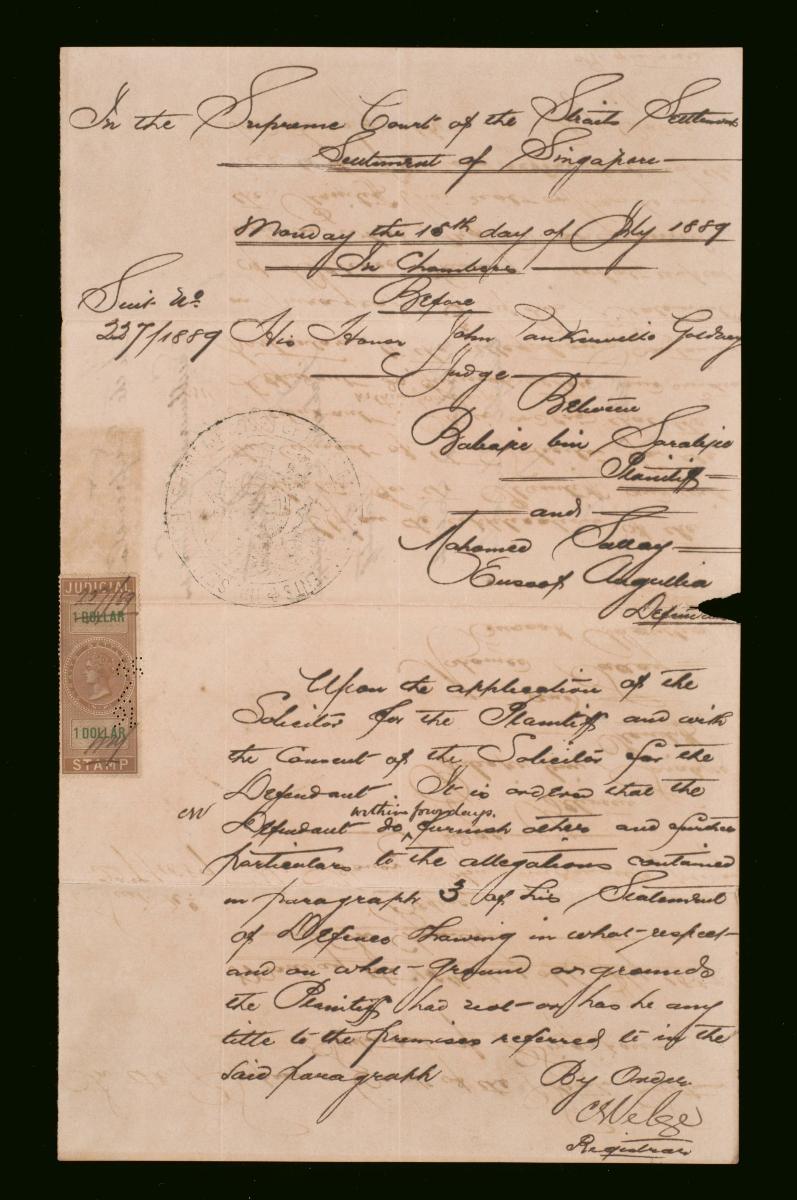 In the Supreme Court of the Straits Settlements
Settlement of Singapore
Monday the 15th day of July 1889
In Chambers
Before
Suit No.
227/1889 His Honor John Tankerville Goldney
Judge
Between
bin
Plaintiff
and
Mohamed Sallay
Eusoof Angullia
Defendant
JUDICIAL
1 DOLLAR
1 DOLLAR
STAMP
Upon the application of the
Solicitor for the Plaintiff and with
the Consent of the Solicitor for the
Defendant It is ordered that the
within four days.
CW Defendant do furnish others and further
particulars to the allegations contained
in paragraph 3 of his Statement
of Defence showing in what respect
and on what ground or grounds
the Plaintiff had not or has he any
title to the premises referred to in the
said paragraph By Order
Registrar